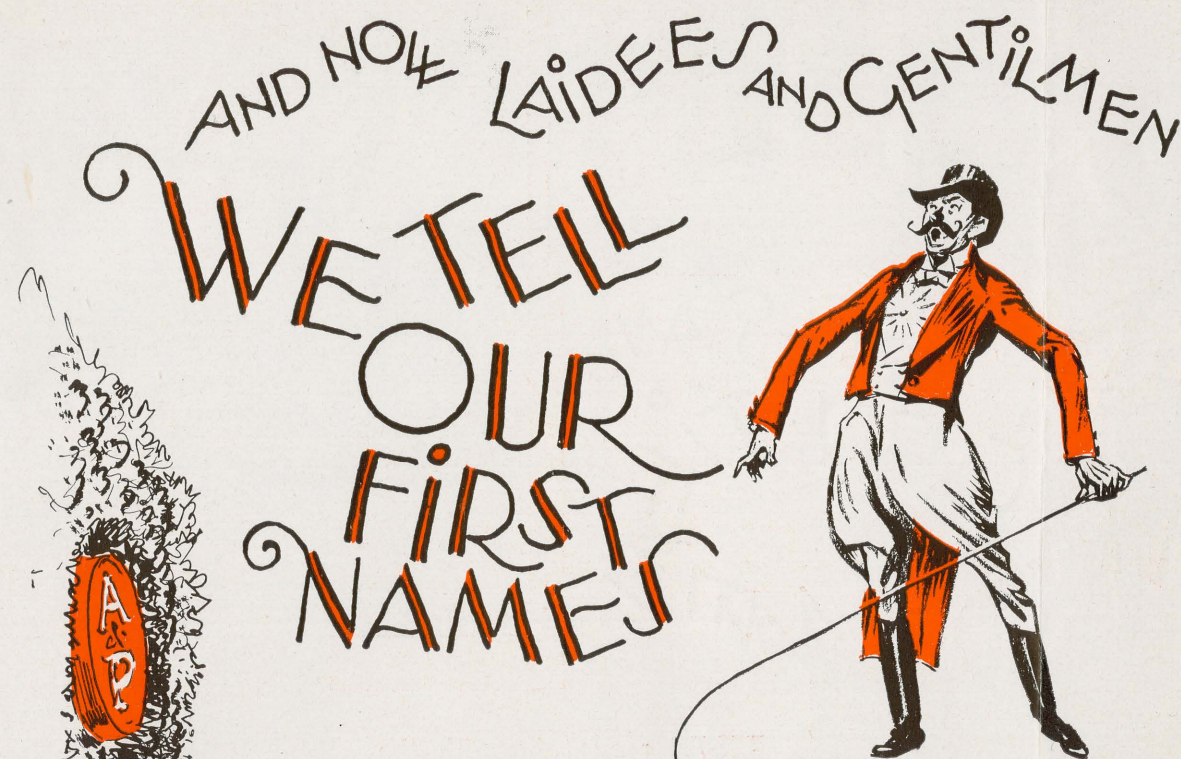 AND NOW LAIDEES AND GENTILMEN
WE TELL
OUR
FIRST
NAMES
A
&
P